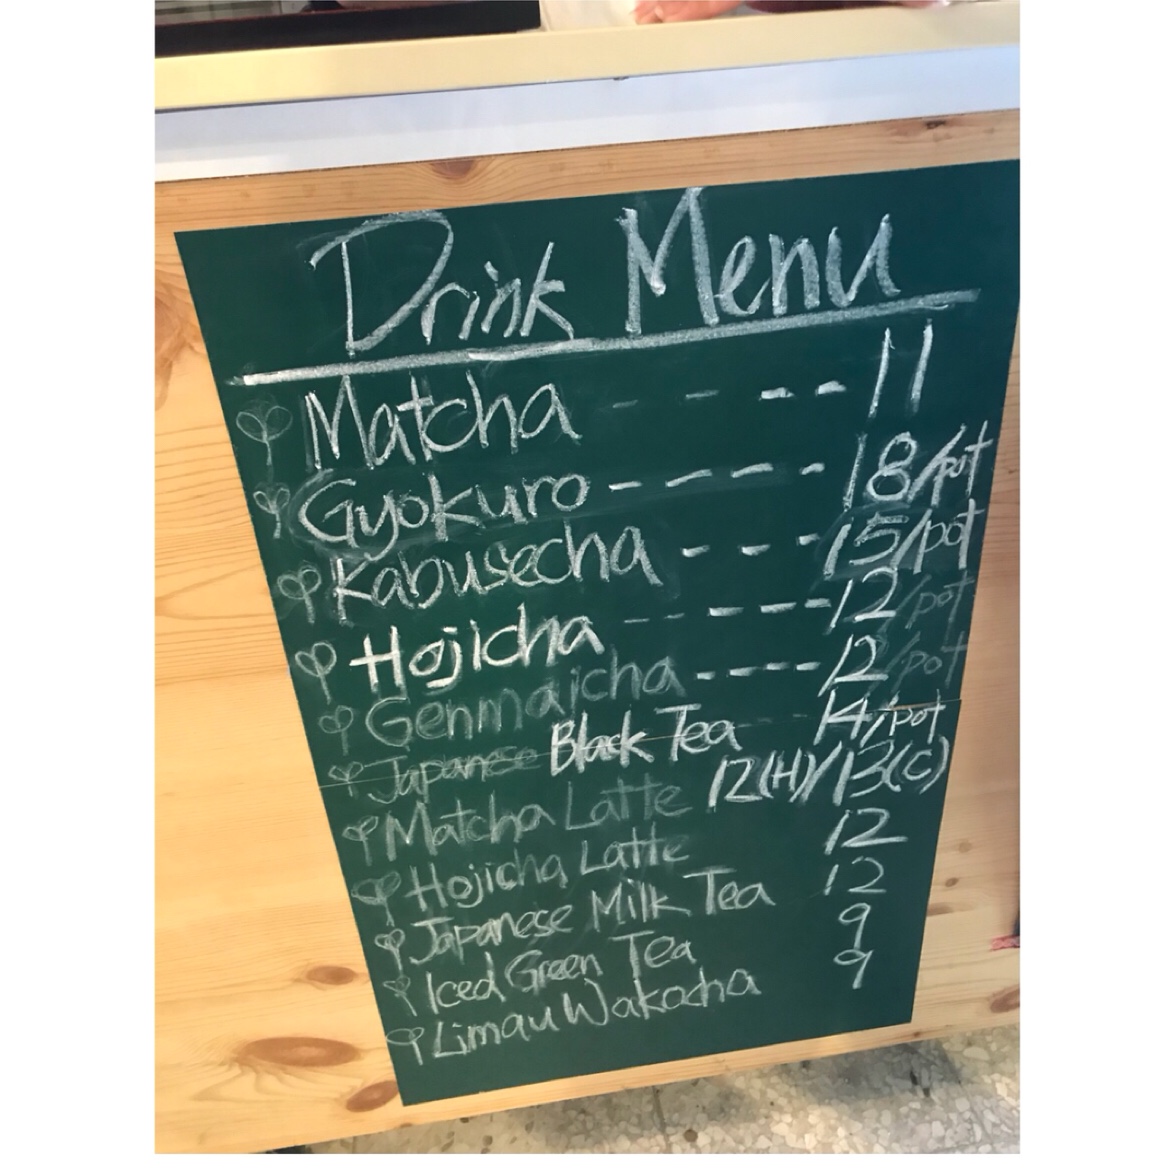 Drink Menu
Matcha - - - - 11
Gyokuro - - - - 18/pot
Kabusecha - - - - 15/pot
Hojicha - - - - - 12/pot
Genmaicha - - - - 12/pot
Japanese Black Tea - - - 14/pot
Matcha Latte 12(H)/13(C)
Hojicha Latte 12
Japanese Milk Tea 12
Iced Green Tea 9
Limau Wakocha 9